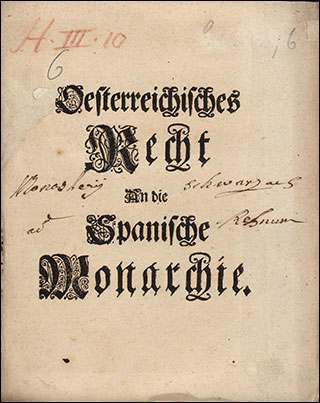 H. III. 10
6
6
Oesterreichisches
Recht
Monasterij
An die
Schwarzach
ad
Spanische
Rhenum
Monarchie.